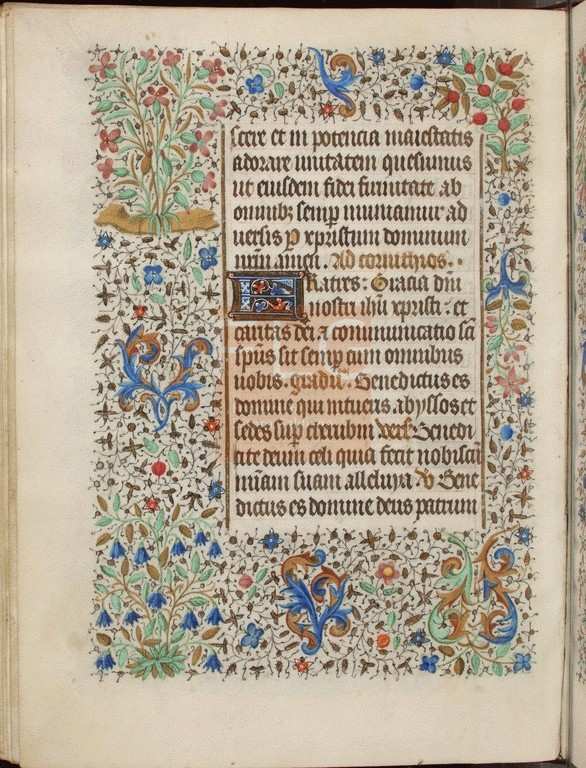 scere et in potencia maiestatis
adorare unitatem quesumus
ut eiusdem fidei firmitate ab
omnibꝫ semp muniamur ad
versis p xpristum dominum
nrm amen. Ad corinthios.
Fratres: Gracia dni
nostri ihu xpristi: et
caritas dei ⁊ communicatio sci
spus sit semp cum omnibus
vobis. gradu Benedictus es
domine qui intueris abyssos et
sedes sup cherubim vers Benedi
cite deum celi quia fecit nobiscu
miam suam alleluya V Bene
dictus es domine deus patrum